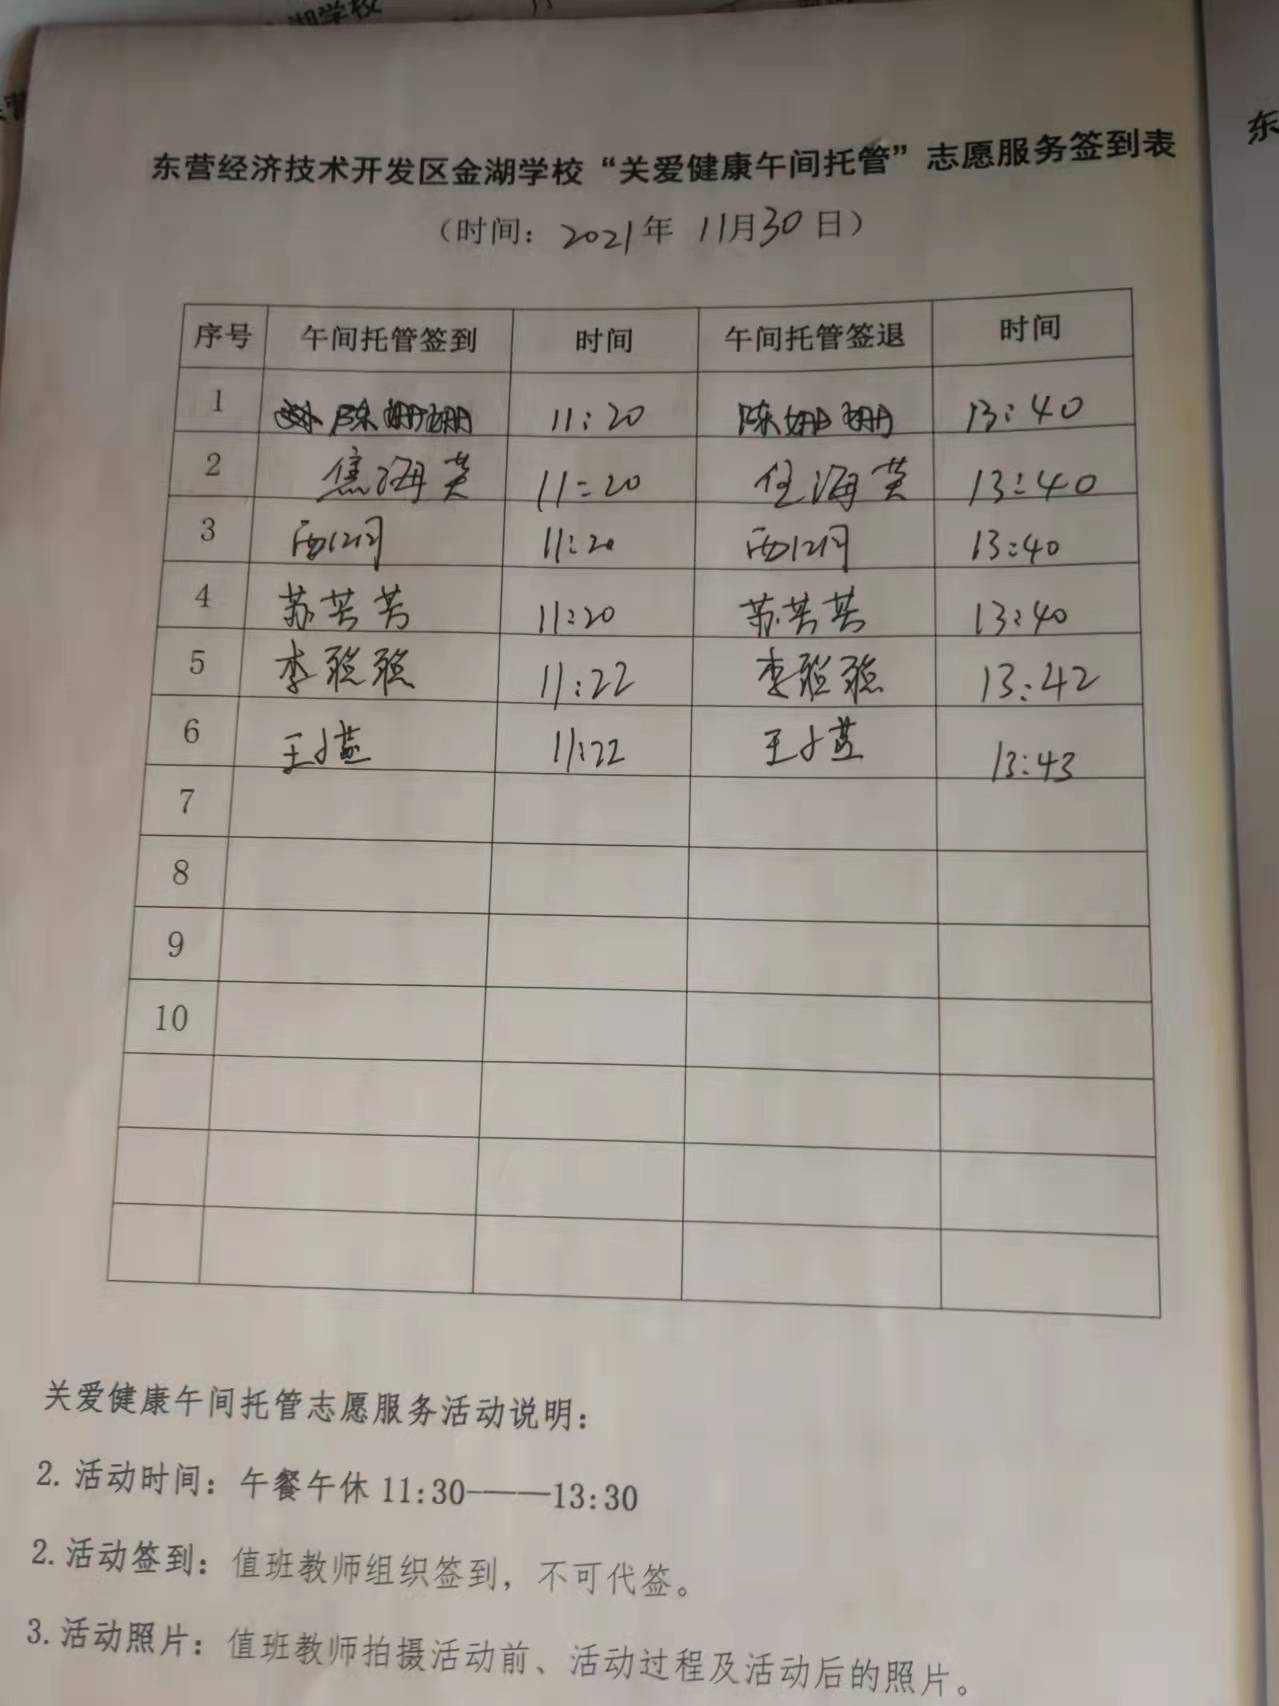 东营经济技术开发区金湖学校“关爱健康午间托管”志愿服务签到表
（时间：2021年 11月30日）
序号 午间托管签到 时间 午间托管签退 时间
1 陈姗姗 11:20 陈姗姗 13:40
2 焦海英 11:20 任海英 13:40
3 11:20 13:40
4 苏芳芳 11:20 苏芳芳 13:40
5 李聪聪 11:22 李聪聪 13:42
6 王小燕 11:22 王小燕 13:43
7
8
9
10
关爱健康午间托管志愿服务活动说明：
2. 活动时间：午餐午休 11:30———13:30
2. 活动签到：值班教师组织签到，不可代签。
3. 活动照片：值班教师拍摄活动前、活动过程及活动后的照片。
东